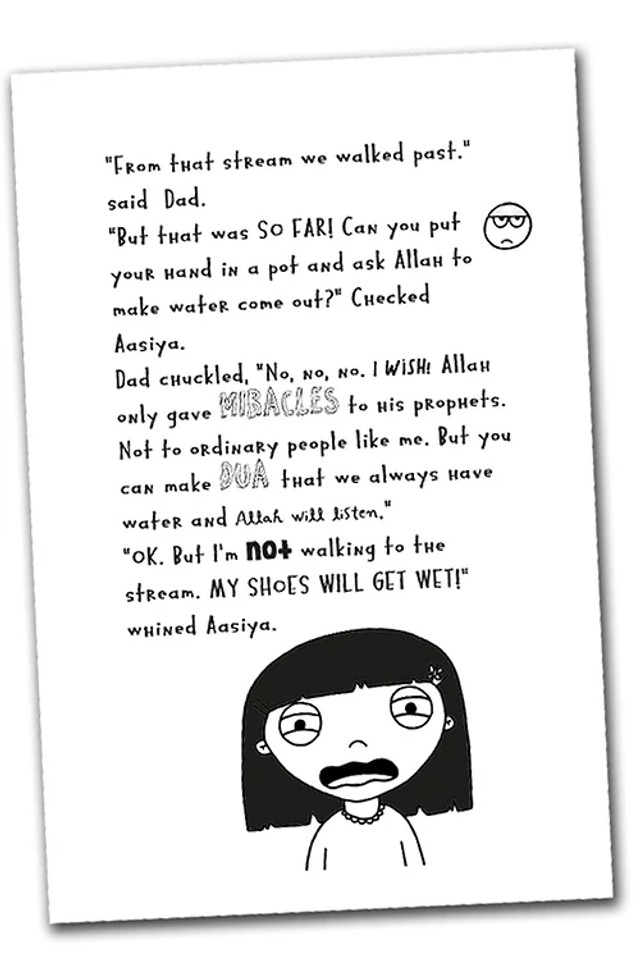 "From that stream we walked past."
said Dad.
"But that was SO FAR! Can you put
your hand in a pot and ask Allah to
make water come out?" Checked
Aasiya.
Dad chuckled, "No, no, no. I WISH! Allah
only gave MIRACLES to his prophets.
Not to ordinary people like me. But you
can make DUA that we always have
water and Allah will listen."
"OK. But I'm not walking to the
stream. MY SHOES WILL GET WET!"
whined Aasiya.